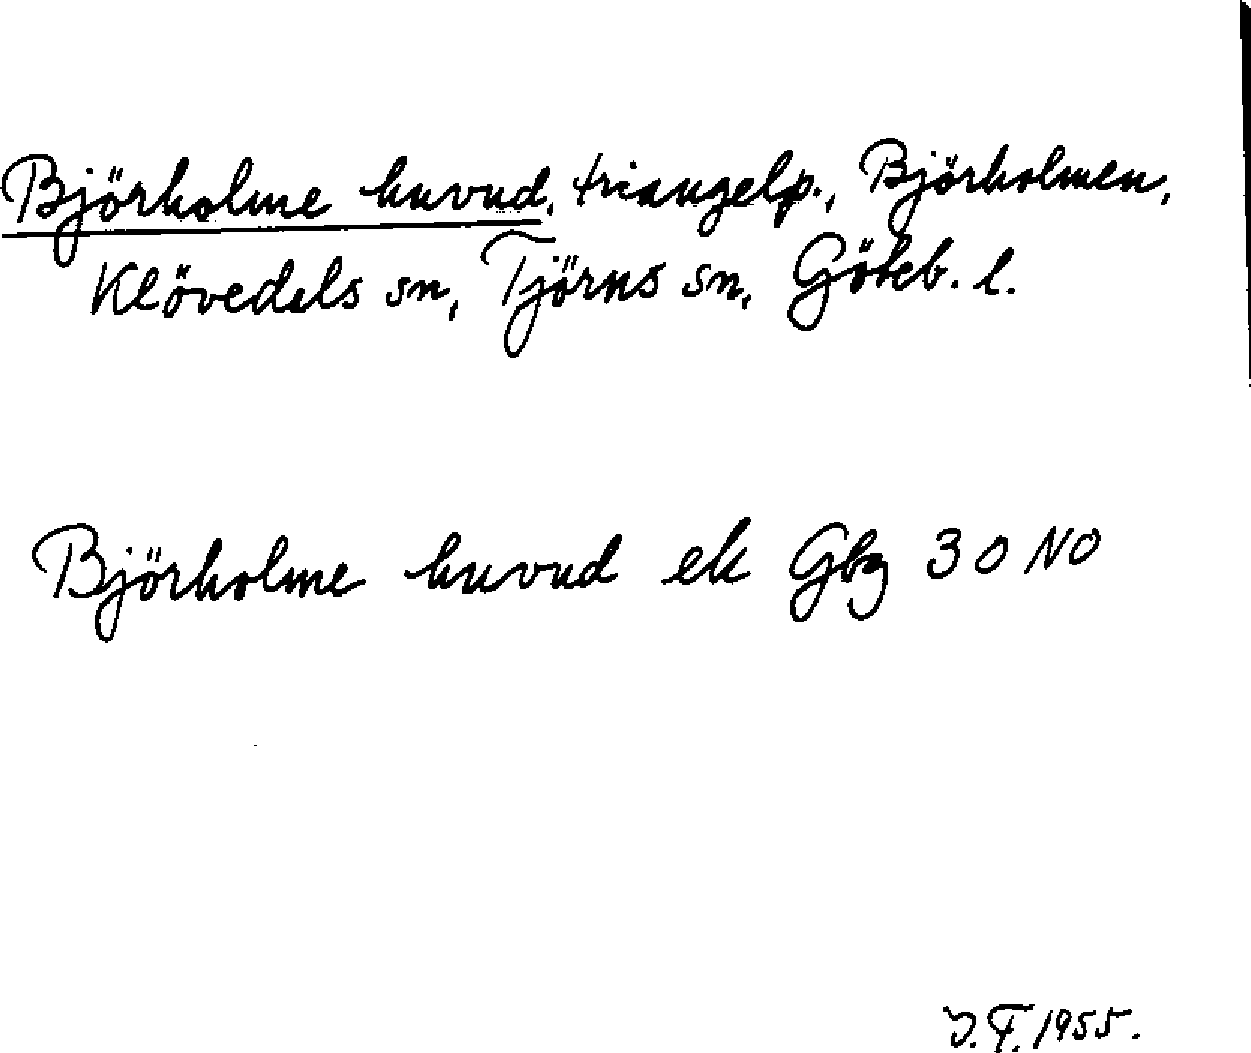 Björholme huvud, triangelp., Björholmen,
Klövedels sn, Tjörns sn, Göteb. l.
Björholme huvud ek Gbg 30 NO
J.F. 1955.